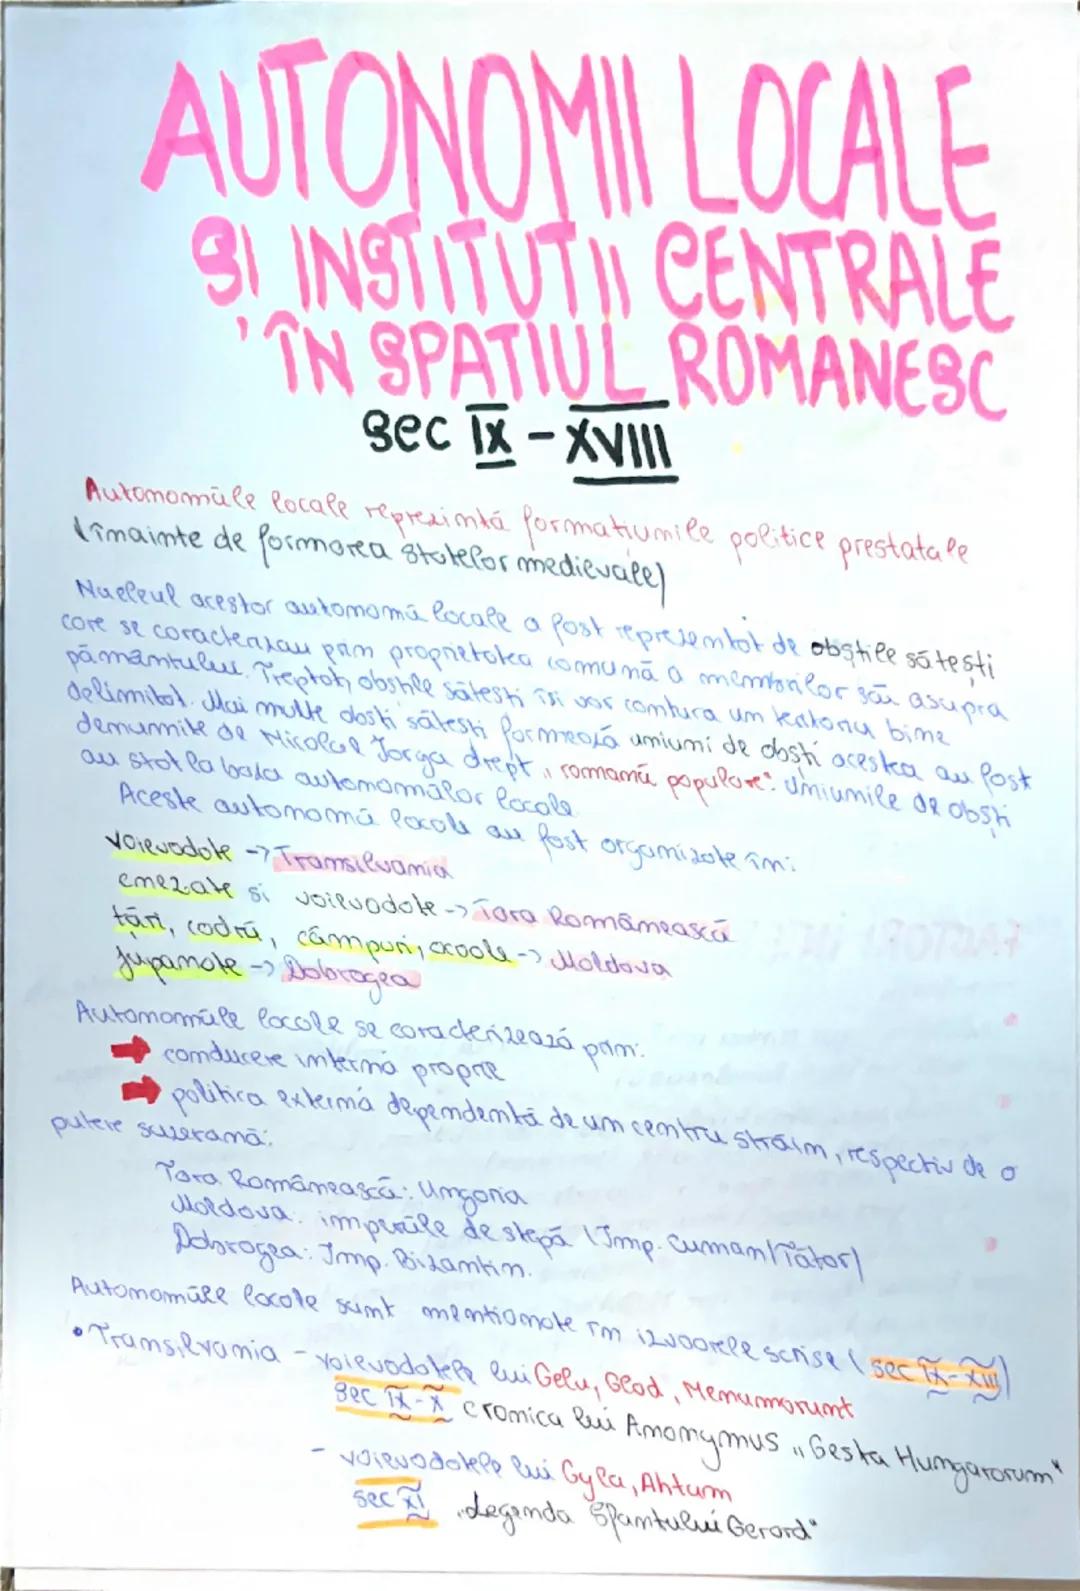 AUTONOMII LOCALE
ȘI INSTITUTII CENTRALE
ÎN SPATIUL ROMANESC
sec IX - XVIII
Autonomiile locale reprezintă formatiunile politice prestatale
(înainte de formarea statelor medievale)
Nucleul acestor autonomii locale a fost reprezentat de obștile sătești
care se caracterizau prin proprietatea comună a membrilor săi asupra
pământului. Treptat, obstile sătesti isi vor contura un teritoriu bine
delimitat. Mai multe obsti sătesti formează uniuni de obști acestea au fost
denumite de Nicolae Iorga drept „romanii populare". Uniunile de obști
au stat la baza autonomiilor locale
Aceste autonomii locale au fost organizate în:
voievodate -> Transilvania
cnezate si voievodate -> Tara Românească
tări, codrii, câmpuri, ocoale -> Moldova
jupanate -> Dobrogea
Autonomiile locale se caracterizează prin:
conducere internă proprie
politica externă dependentă de un centru străin, respectiv de o
putere suzerană:
Tara Românească: Ungaria
Moldova: imperiile de stepă (Imp. Cuman/Tătar)
Dobrogea: Imp. Bizantin.
Autonomiile locale sunt mentionate în izvoarele scrise (sec IX-XIII)
• Transilvania - voievodatele lui Gelu, Glad, Menumorunt
sec IX-X cronica lui Anonymus „Gesta Hungarorum"
- voievodatele lui Gyla, Ahtum
sec XI „Legenda Sfantului Gerard"